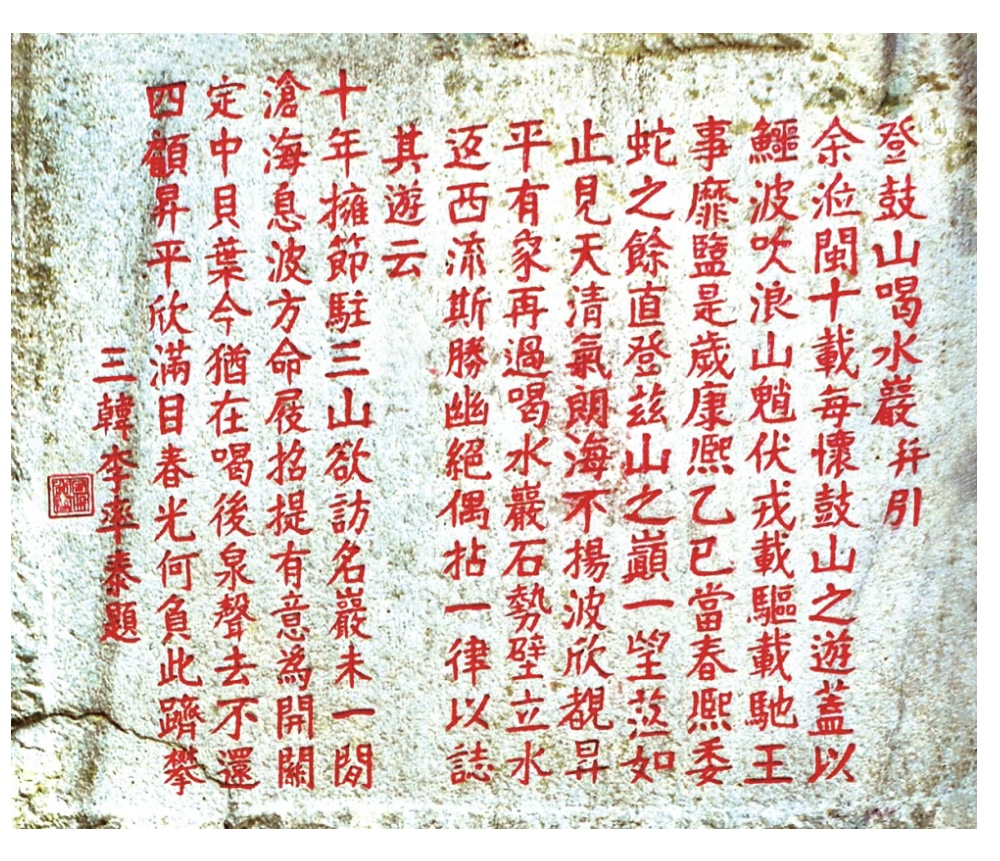 登鼓山喝水巖并引
余涖閩十載每懷鼓山之遊蓋以
鱷波吹浪山魈伏戎載驅載馳王
事靡盬是歲康熙乙巳當春熙委
蛇之餘直登茲山之巔一望茫如
止見天清氣朗海不揚波欣覩昇
平有象再過喝水巖石勢壁立水
返西流斯勝幽絕偶拈一律以誌
其遊云
十年擁節駐三山欲訪名巖未一閒
滄海息波方命屐招提有意為開關
定中貝葉今猶在喝後泉聲去不還
四顧昇平欣滿目春光何負此躋攀
三韓李率泰題